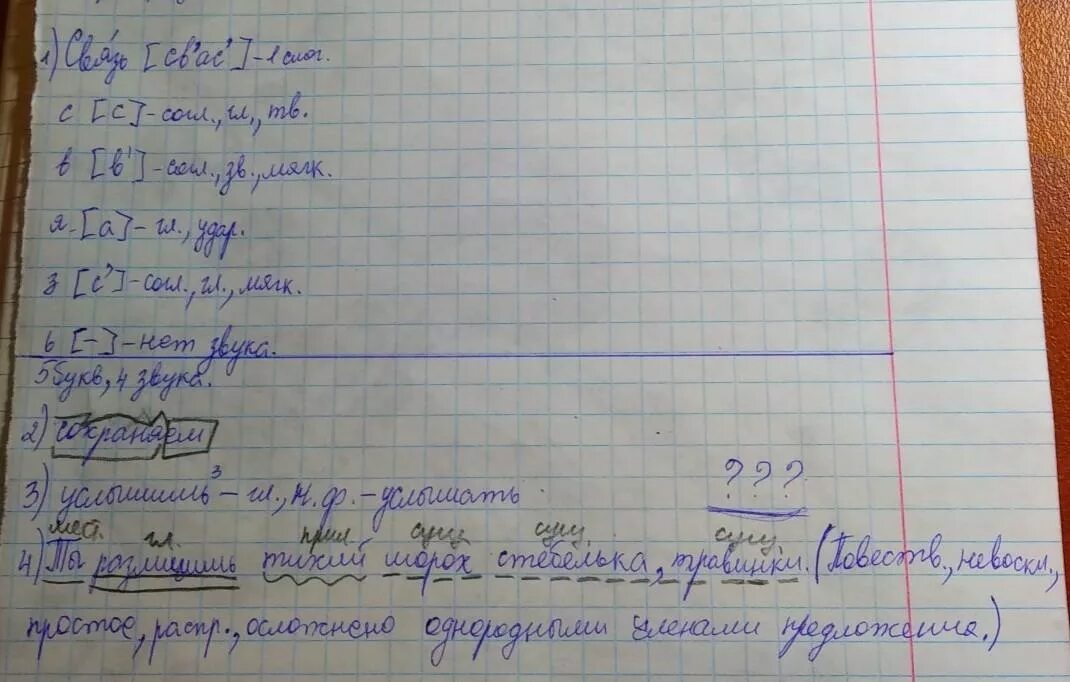 1) Связь [св'ас'] - 1 слог.
с [с] - согл., гл., тв.
в [в'] - согл., зв., мягк.
я - [а] - гл., удар.
з [с'] - согл., гл., мягк.
ь [-] - нет звука.
5 букв, 4 звука.
2) сохраняем
3) услышишь³ - гл., н.ф. - услышать
???
мест. гл. прил. сущ. сущ. сущ.
4) Ты различишь тихий шорох стебелька, травинки. (Повеств., невоскл.,
простое, распр., осложнено однородными членами предложения.)